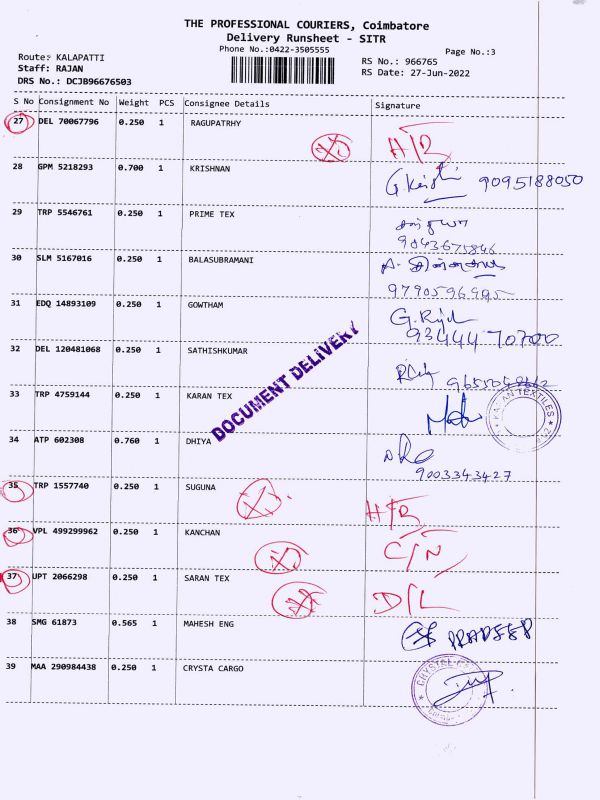 THE PROFESSIONAL COURIERS, Coimbatore
Delivery Runsheet - SITR
Phone No.:0422-3505555
Page No.:3
Route: KALAPATTI
Staff: RAJAN
DRS No.: DCJB96676503
RS No.: 966765
RS Date: 27-Jun-2022
S No Consignment No Weight PCS Consignee Details Signature
27 DEL 70067796 0.250 1 RAGUPATRHY
28 GPM 5218293 0.700 1 KRISHNAN 9095188050
29 TRP 5546761 0.250 1 PRIME TEX
9043675846
30 SLM 5167016 0.250 1 BALASUBRAMANI
31 EDQ 14893109 0.250 1 GOWTHAM
93444 70700
32 DEL 120481068 0.250 1 SATHISHKUMAR
33 TRP 4759144 0.250 1 KARAN TEX
KARAN TEXTILES
34 ATP 602308 0.760 1 DHIYA
9003343427
DOCUMENT DELIVERY
35 TRP 1557740 0.250 1 SUGUNA
36 VPL 499299962 0.250 1 KANCHAN
C/N
37 UPT 2066298 0.250 1 SARAN TEX
D/L
38 SMG 61873 0.565 1 MAHESH ENG PRADEEP
39 MAA 290984438 0.250 1 CRYSTA CARGO